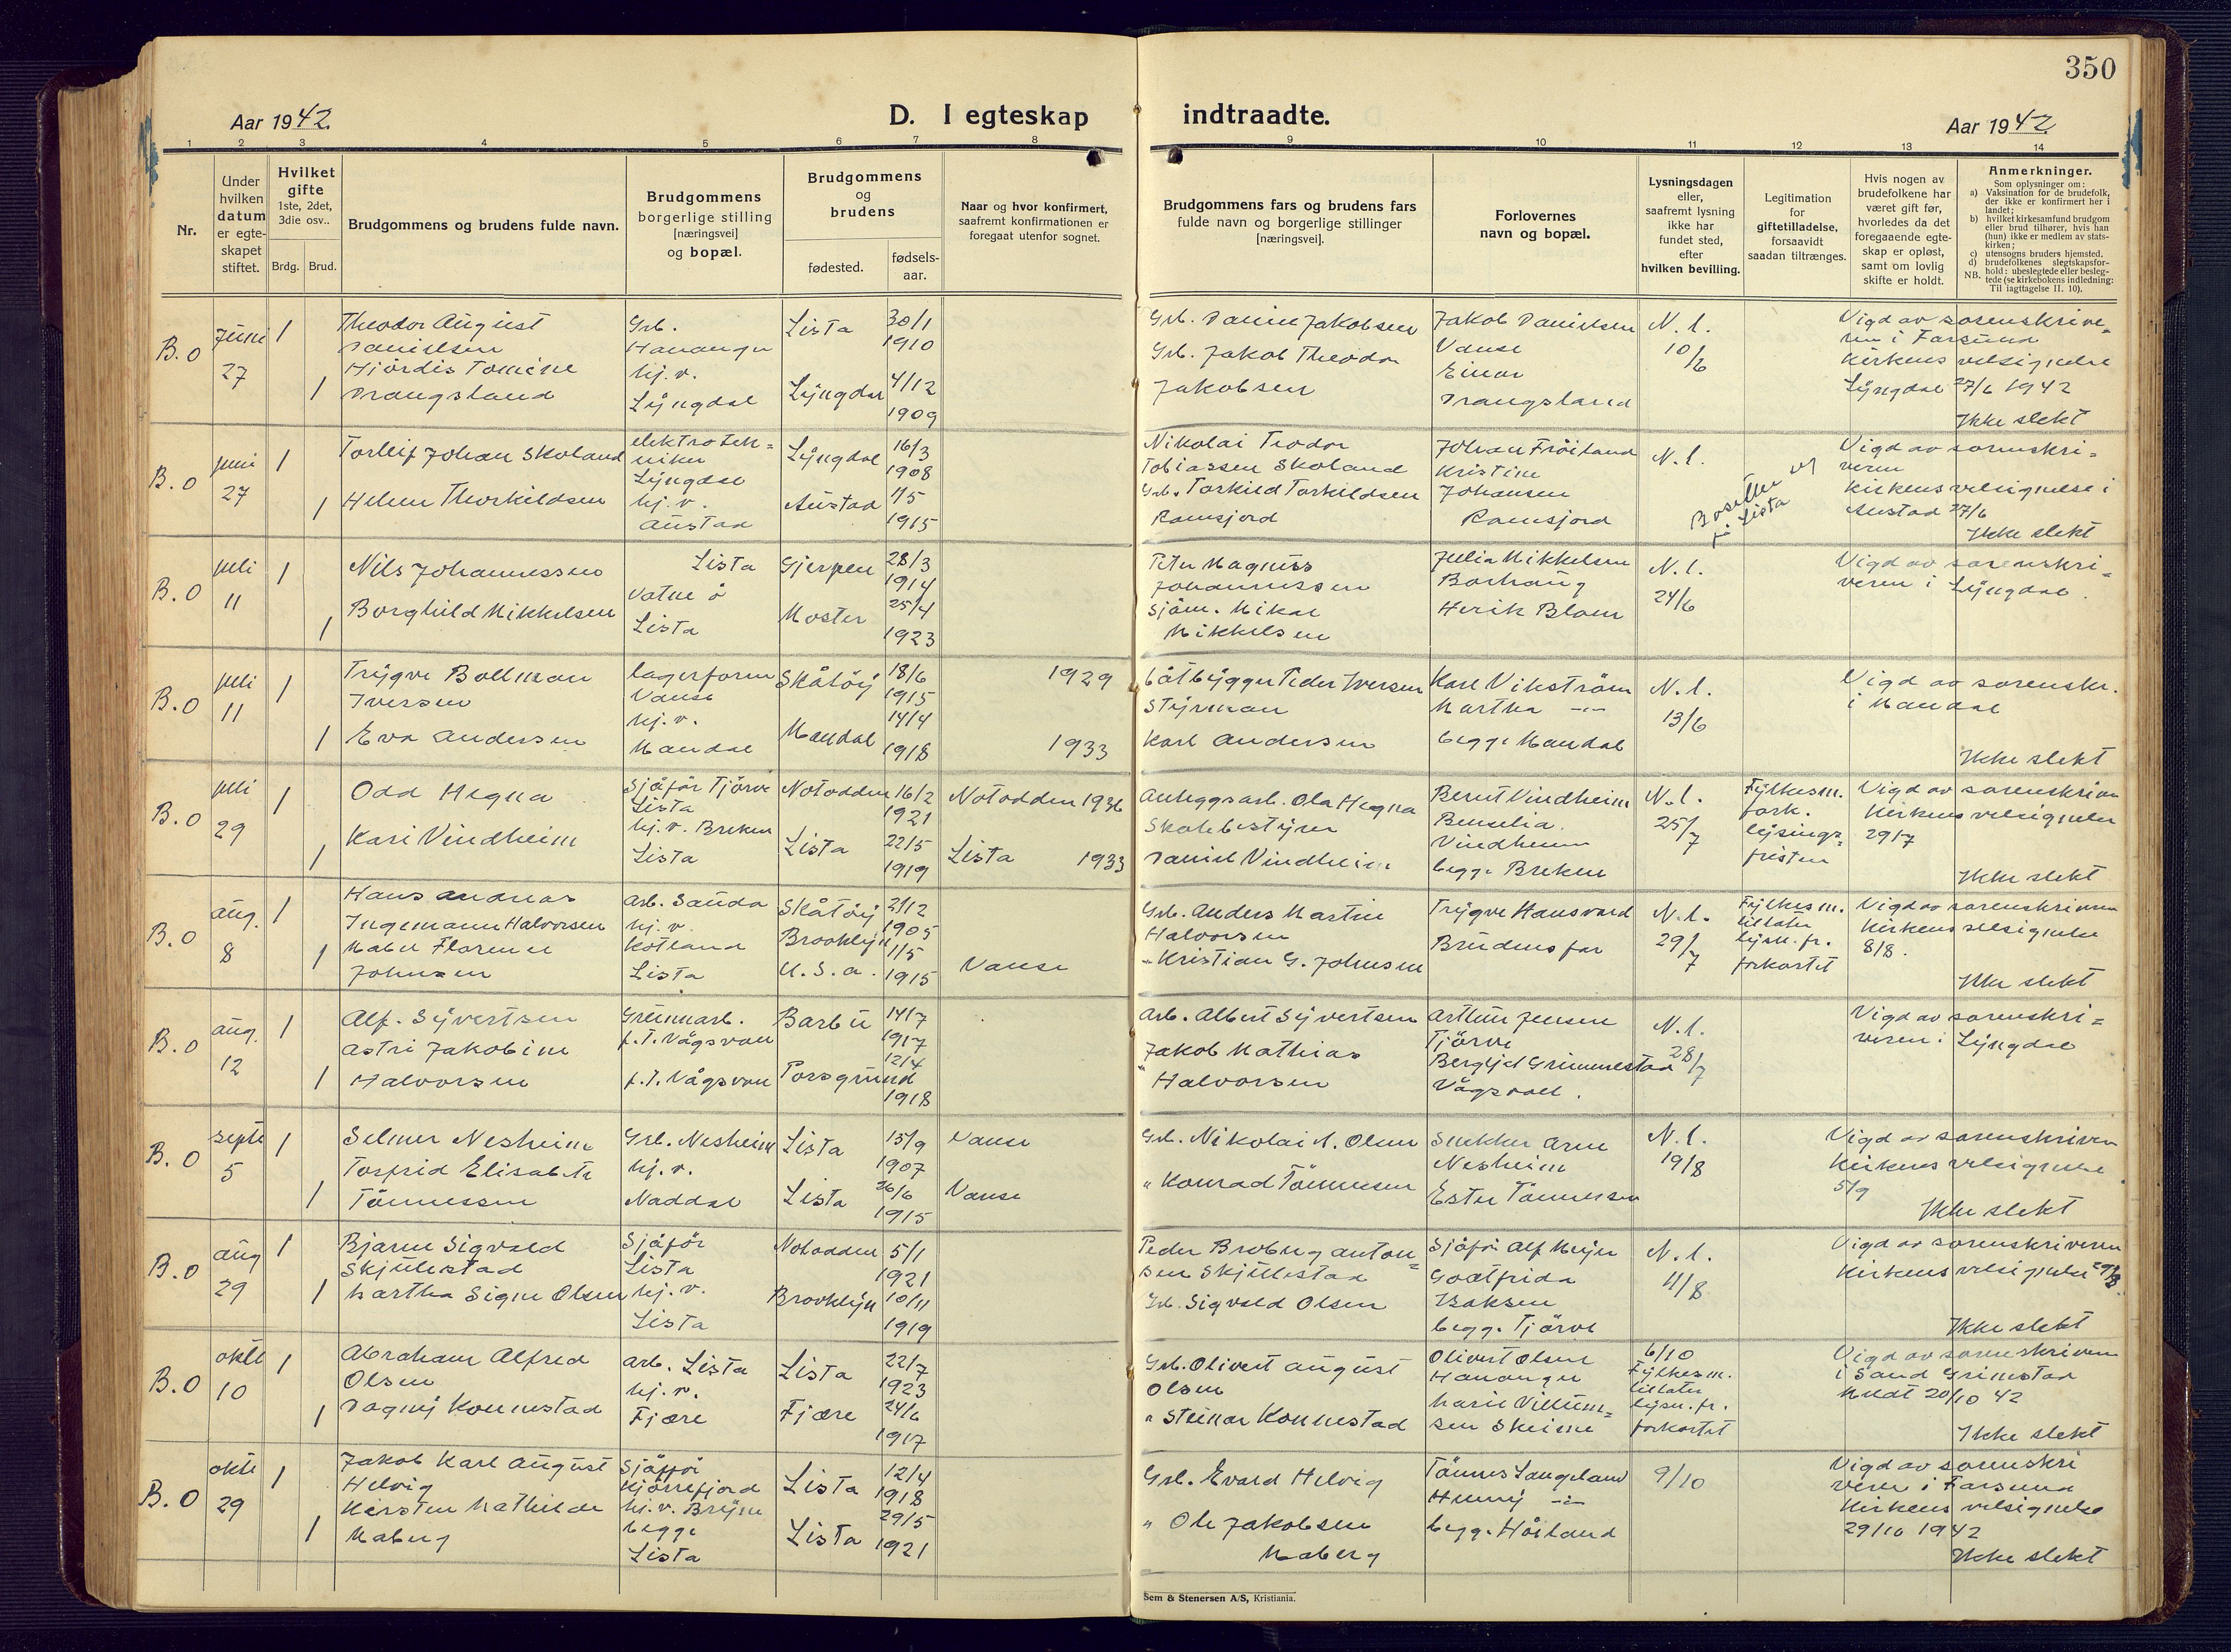 350
Aar 1942.
D. I egteskap indtraadte.
Aar 1942
1 2 3 4 5 6 7 8 9 10 11 12 13 14
Nr.
Under hvilken datum er egte-skapet stiftet.
Hvilket gifte 1ste, 2det, 3die osv..
Brdg. Brud.
Brudgommens og brudens fulde navn.
Brudgommens borgerlige stilling [næringsvei] og bopæl.
Brudgommens og brudens
fødested.
fødsels-aar.
Naar og hvor konfirmert, saafremt konfirmationen er foregaat utenfor sognet.
Brudgommens fars og brudens fars fulde navn og borgerlige stillinger [næringsvei].
Forlovernes navn og bopæl.
Lysningsdagen eller, saafremt lysning ikke har fundet sted, efter hvilken bevilling.
Legitimation for giftetilladelse, forsaavidt saadan tiltrænges.
Hvis nogen av brudefolkene har været gift før, hvorledes da det foregaaende egte-skap er opløst, samt om lovlig skifte er holdt.
Anmerkninger.
Som oplysninger om:
a) Vaksination for de brudefolk, der ikke er konfirmert her i landet;
b) hvilket kirkesamfund brudgom eller brud tilhører, hvis han (hun) ikke er medlem av stats-kirken;
c) utensogns bruders hjemsted.
d) brudefolkenes slegtskapsfor-hold: ubeslegtede eller besleg-
NB. tede (se kirkebokens indledning: Til iagttagelse II. 10).
B.O Juni 27 1 1
Theodor August Danielsen
Hjördis Tomine Drangsland
Grb. Hananger
hj. v. Lyngdal
Lista 30/1 1910
Lyngdal 4/12 1909
Grb. Daniel Jakobsen
Grb. Jakob Theodor Jakobsen
Jakob Danielsen Vanse
Einar Drangsland
N. l. 10/6
Vigd av sorenskrive=
ren i Farsund
Kirkens velsignelse
Lyngdal 27/6 1942
Ikke slekt
B.O juni 27 1 1
Torleif Johan Skoland
Helene Thorkildsen
elektrotek=
niker
Lyngdal
hj. v.
Austad
Lyngdal 16/3 1908
Austad 1/5 1915
Nikolai Teodor
Tobiassen Skoland
Grb. Torkild Torkildsen
Ramsjord
Johan Fröiland
Kristine
Johansen
Ramsjord
N. l.
Bosetter
i Lista
Vigd av sorenskri=
veren
Kirkens velsignelse i
Austad 27/6
Ikke slekt
B.O juli 11 1 1
Nils Johannessen
Borghild Mikkelsen
Lista
Vatne ö
Lista
Gjerpen 28/3 1914
Moster 25/4 1923
Peter Magnus
Johannessen
Sjöm. Mikal
Mikkelsen
Julia Mikkelsen
Borhaug
Henrik Blom
N. l. 24/6
Vigd av sorenskri=
veren i Lyngdal.
B.O juli 11 1 1
Trygve Bollman
Iversen
Eva Andersen
lagerform
Vanse
hj. v.
Mandal
Skåtöy 18/6 1915 1929
Mandal 14/4 1918 1933
båtbygger Peder Iversen
Styrman
Karl Andersen
Karl Vikström
Martha -"-
begge Mandal
N. l. 13/6
Vigd av sorenskr.
i Mandal
Ikke slekt
B.O juli 29 1 1
Odd Hegna
Kari Vindheim
Sjåför Tjörve
Lista
hj. v. Brekne
Lista
Notodden 16/2 1921 Notodden 1936
Lista 22/5 1919 Lista 1933
Anleggsarb. Ola Hegna
Skolebestyrer
Daniel Vindheim
Bernt Vindheim
Benselia
Vindheim
begge Brekne
N. l. 25/7
Fylkesm.
fork.
lysings=
fristen
Vigd av sorenskriver
Kirkens velsignelse
29/7
Ikke slekt
B.O aug. 8 1 1
Hans Andreas
Ingemann Halvorsen
Mabel Florence
Johnsen
arb. Sanda
hj. v.
Kolland
Lista
Skåtöy 21/2 1905
Brooklyn U. S. a. 1/5 1915 Vanse
Grb. Anders Martin
Halvorsen
" Kristian G. Johnsen
Trygve Hansvard
Brudens far
N. l. 29/7
Fylkesm.
tillater
lysn. fr.
forkortet
Vigd av sorenskriveren
Kirkens velsignelse
8/8.
Ikke slekt
B.O aug. 12 1 1
Alf. Syvertsen
Astri Jakobine
Halvorsen
Grunnarb.
f. T. Vågsvoll
f. T. Vågsvoll
Barbu 14/7 1917
Porsgrund 12/4 1918
Arb. Albert Syvertsen
Jakob Mathias
" Halvorsen
Arthur Jensen
Tjörve
Bergljot Grimmestad
Vågsvoll.
N. l. 28/7
Vigd av sorenskri=
veren i Lyngdal
B.O septe 5 1 1
Selmer Nesheim
Torfrid Elisabeth
Tönnessen
Grb. Nesheim
hj. v.
Naddal
Lista 15/9 1907 Vanse
Lista 26/6 1915 Vanse
Grb. Nikolai A. Olsen
" Konrad Tönnessen
Snekker Arne
Nesheim
Ester Tönnessen
N. l. 19/8
Vigd av sorenskriveren
Kirkens velsignelse
5/9
Ikke slekt
B.O aug 29 1 1
Bjarne Sigvald
Skjulestad
Martha Signe Olsen
Sjåför
Lista
hj. v.
Lista
Notodden 5/1 1921
Brooklyn 10/11 1919
Peder Broberg Anton=
sen Skjulestad
Grb. Sigvald Olsen
Sjåför Alf Meyer
Godtfrida
Isaksen
begge Tjörve
N. l. 11/8
Vigd av sorenskriveren
Kirkens velsignelse 29/8.
Ikke slekt
B.O okt 10 1 1
Abraham Alfred
Olsen
Dagny Konnestad
arb. Lista
hj. v.
Fjære
Lista 22/7 1923
Fjære 24/6 1917
Grb. Olivert August
Olsen
" Steinar Konnestad
Olivert Olsen
Hananger
Marie Villum=
sen Skeime
6/10
Fylkesm.
tillater
lysn. fr.
forkortet
Vigd av sorenskriveren
i Sand Grimstad
Meldt 20/10 42
Ikke slekt
B.O okt 29 1 1
Jakob Karl August
Helvig
Kirsten Mathilde
Maberg
Sjåför
Kjörrefjord
hj. v. Bryne
begge
Lista
Lista 12/4 1918
Lista 29/5 1921
Grb. Evard Helvig
" Ole Jakobsen
Maberg
Tönnes Langeland
Henny -"-
begge Höiland
9/10
Vigd av sorenskri
veren i Farsund
Kirkens velsignelse
29/10 1942
Ikke slekt
Sem & Stenersen A/S, Kristiania.